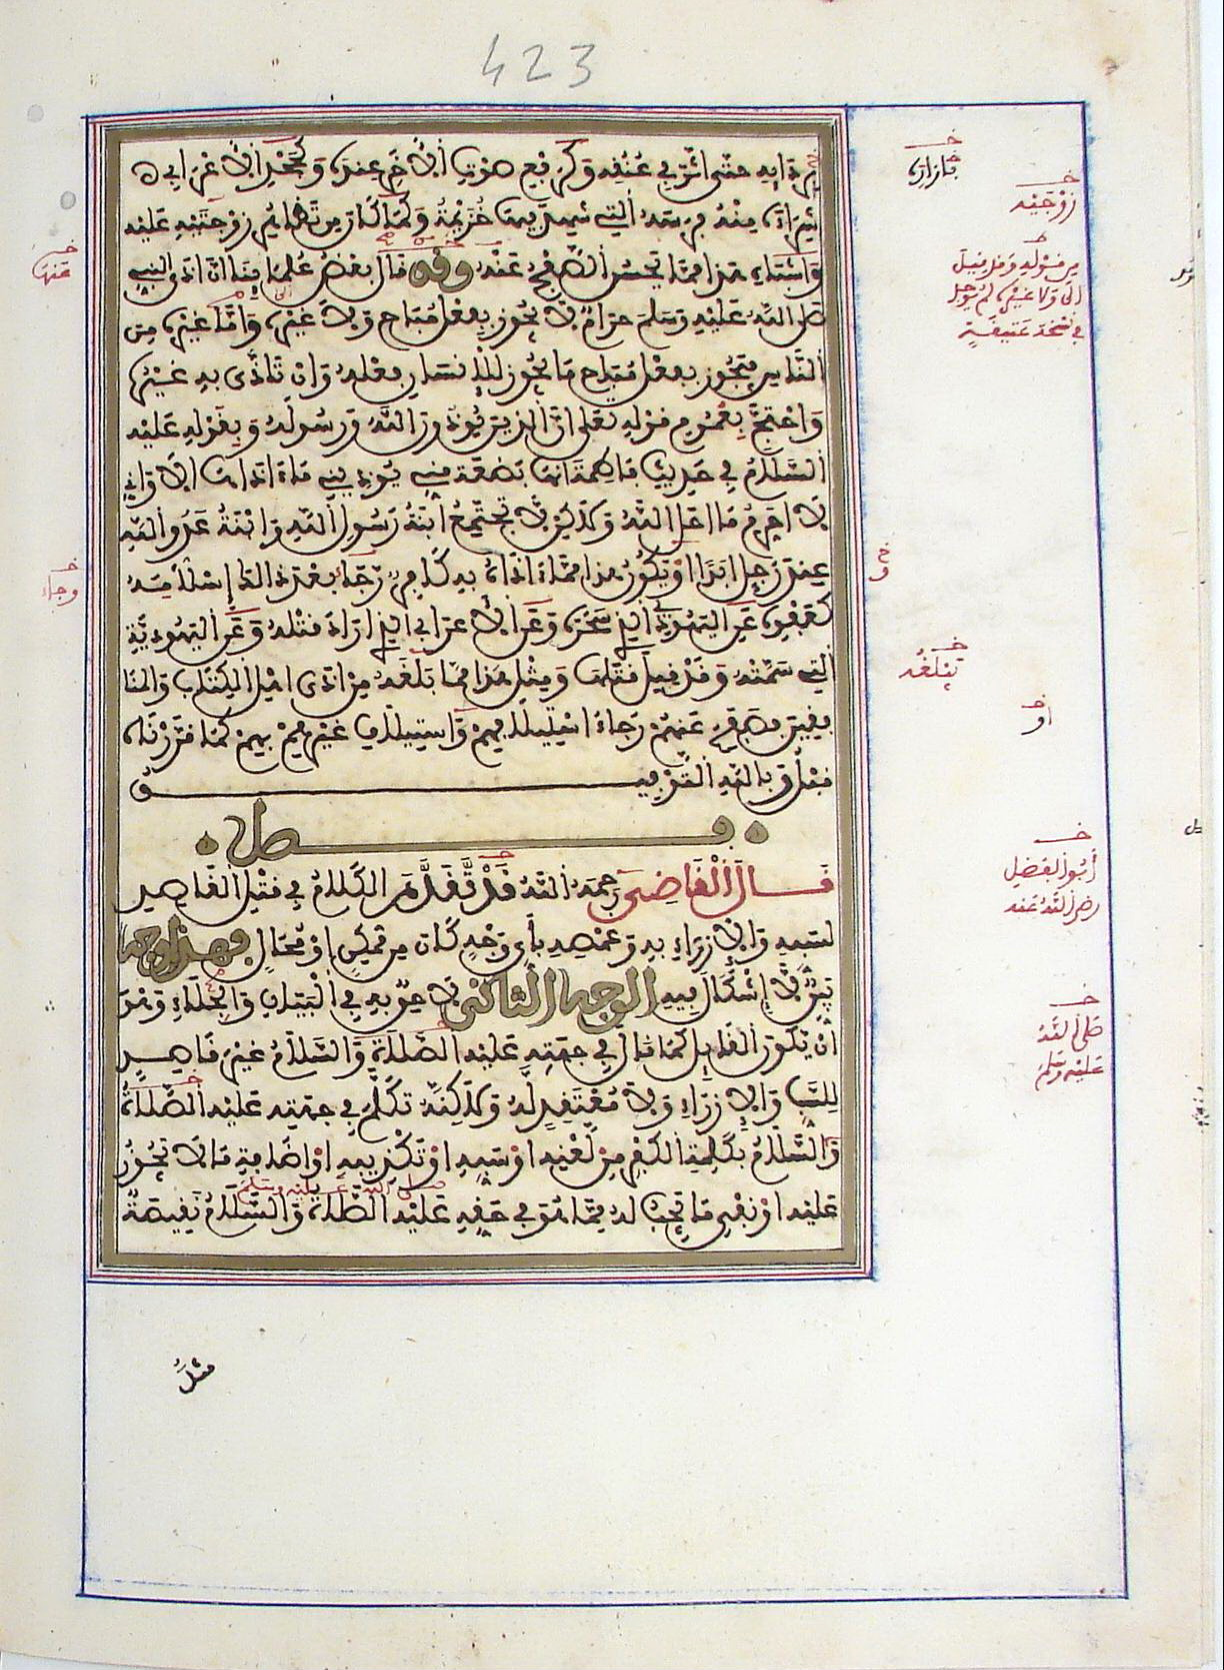 423
بردايه حتى أثر في عنقه وكرفع صوت الآخر عنده وكجحد الأعرابي
شراءه منه فرسه التي شهد فيها خزيمة وكما كان من تظاهر زوجتيه عليه
وأشباه هذا مما يحسن الصفح عنه وقد قال بعض علمائنا ان اذى النبي
صلى الله عليه وسلم حرام لا يجوز بفعل مباح ولا غيره واما غيره من
الناس فيجوز بفعل مباح ما يجوز للإنسان فعله وان تأذى به غيره
واحتج بعموم قوله تعلى ان الذين يوذون الله ورسوله وبقوله عليه
السلام في حديث فاطمة انها بضعة مني يوذيني ما اذاها الا واني
لا احرم ما احل الله ولكن لا تجتمع ابنة رسول الله وابنة عدو الله
عند رجل ابدا او يكون هذا مما اذاه به كافر رجا بعد ذلك إسلامه
كعفوه عن اليهودي الذي سحره وعن الاعرابي الذي اراد قتله وعن اليهودية
التي سمته وقد قيل قتلها ومثل هذا مما بلغه من اذى اهل الكتاب والمنا
فقين فصفح عنهم رجاء استيلافهم واستيلاف غيرهم بهم كما قررناه
قبل وبالله التوفيق
فصل
قال القاضي رحمه الله قد تقدم الكلام في قتل القاصد
لسبه والإزراء به وغمصه بأي وجه كان من ممكن او محال فهذا وجه
بين لا إشكال فيه الوجه الثاني لاحق به في البيان والجلاء وهو
أن يكون القايل لما قال في جهته عليه الصلاة والسلام غير قاصد
للسب والإزراء ولا معتقد له ولكنه تكلم في جهته عليه الصلاة
والسلام بكلمة الكفر من لعنه او سبه او تكذيبه او اضافة ما لا يجوز
عليه او نفي ما يجب له مما هو في حقه عليه الصلاة والسلام نقيصة
صلى الله عليه وسلم
مثل
خ
زوجيه
من قوله وقد قيل
الى ولا غيره لم يوجد
في نسخة عتيقة
خ
عنها
خ
وجاء
خ
يبلغه
خ
او
خ
أبو الفضل
رضي الله عنه
خ
صلى الله
عليه وسلم